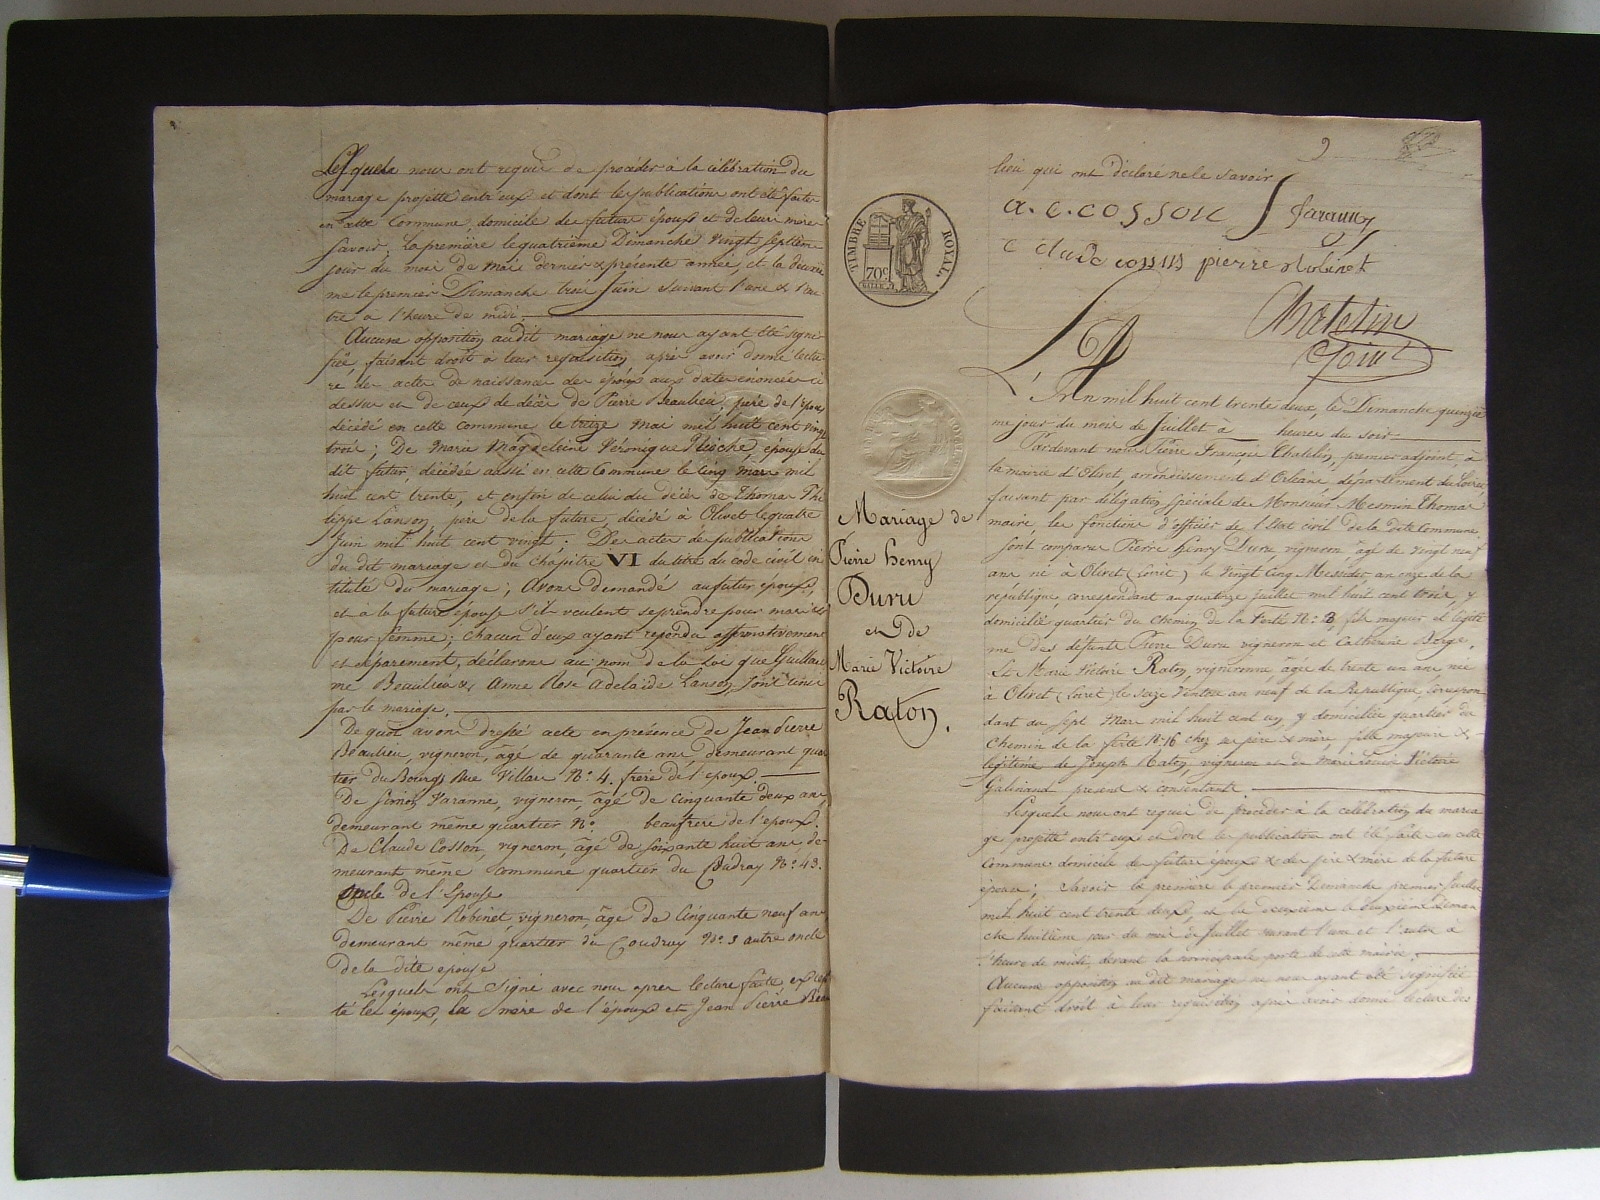 Lesquels nous ont requis de procéder à la célébration du
mariage projetté entr'eux et dont les publications ont été faites
en cette Commune, domicile des futurs époux et de leurs mères
Savoir, la première le quatrième Dimanche vingt septième
jour du mois de Mai dernier présente année, et la deuxiè
me le premier Dimanche trois Juin suivant l'une & l'au
tre à l'heure de midi.
Aucune opposition audit mariage ne nous ayant été signi
fiée, faisant droit à leur réquisition, après avoir donné lectu
re des actes de naissance des époux aux dates énoncées ci
dessus et de ceux de décès de Pierre Beaulieu, père de l'époux
décédé en cette commune le treize mai mil huit cent vingt
trois; De Marie Magdeleine Véronique Pioche, épouse du
dit futur, décédée aussi en cette Commune le cinq mars mil
huit cent trente, et enfin de celui du décès de Thomas Phi
lippe Lanson, père de la future, décédé à Olivet le quatre
Juin mil huit cent vingt. Des actes de publications
du dit mariage et du Chapitre VI du titre du code civil in
titulé du mariage; Avons demandé au futur époux,
et à la future épouse s'il veulent se prendre pour mari et
pour femme; chacun d'eux ayant répondu affirmativement
et séparément, déclarons au nom de la Loi que Guillau
me Beaulieu & Anne Rose Adélaïde Lanson, sont unis
par le mariage.
De quoi avons dressé acte en présence de Jean Pierre
Beaulieu, vigneron, âgé de quarante ans, demeurant quar
tier du Bourg, Rue Villars N°. 4. frère de l'époux
De Simon Faranne, vigneron, âgé de Cinquante deux ans,
demeurant même quartier N°. beaufrère de l'époux.
De Claude Cosson, vigneron, âgé de soixante huit ans de
meurant même commune quartier du Coudray N°. 43.
Oncle de l'Epouse
De Pierre Robinet, vigneron, âgé de Cinquante neuf ans,
demeurant même quartier du Coudray N°. 3 autre oncle
de la dite épouse
Lesquels ont signé avec nous après lecture faite, excep
té les époux, la mère de l'époux et Jean Pierre Beau
9
lieu qui ont déclaré ne le savoir
a.c. cosson faranny
claude cosson pierre robinet
Chatelin
Adjoint
TIMBRE ROYAL.
70c
L'An mil huit cent trente deux, le Dimanche quinziè
me jour du mois de Juillet à heures du soir
Pardevant nous Pierre François Chatelin, premier adjoint, à
la mairie d'Olivet, arrondissement d'Orléans, département du Loiret
faisant par délégation spéciale de Monsieur Mesmin Thomas
maire, les fonctions d'officier de l'Etat civil de la dite Commune
sont comparus Pierre Henry Duru vigneron âgé de vingt neuf
ans, né à Olivet (Loiret) le vingt cinq Messidor, an onze de la
république, correspondant au quatorze juillet mil huit cent trois, y
domicilié quartier du chemin de la Ferté N°. 3 fils majeur et légiti
me des défunts Pierre Duru vigneron et Catherine Borge.
Et Marie Victoire Raton, vigneronne, âgée de trente un ans, née
à Olivet (Loiret) le seize Ventose an neuf de la République, correspon
dant au sept Mars mil huit cent un, y domiciliée quartier du
Chemin de la ferté N°. 16 chez ses père & mère, fille majeure &
légitime de Joseph Raton, vigneron et de Marie Louise Victoire
Galinand présens & consentants.
Mariage de
Pierre Henry
Duru
et de
Marie Victoire
Raton.
Lesquels nous ont requis de procéder à la célébration du maria
ge projetté entr'eux et dont les publications ont été faites en cette
Commune domicile des futurs époux & des père & mère de la future
épouse; Savoir la première le premier Dimanche premier Juillet
mil huit cent trente deux, et la deuxième le deuxième Diman
che huitième jour du mois de Juillet suivant l'une et l'autre à
l'heure de midi, devant la principale porte de cette mairie.
Aucune opposition au dit mariage ne nous ayant été signifiée
faisant droit à leur réquisition après avoir donné lecture des